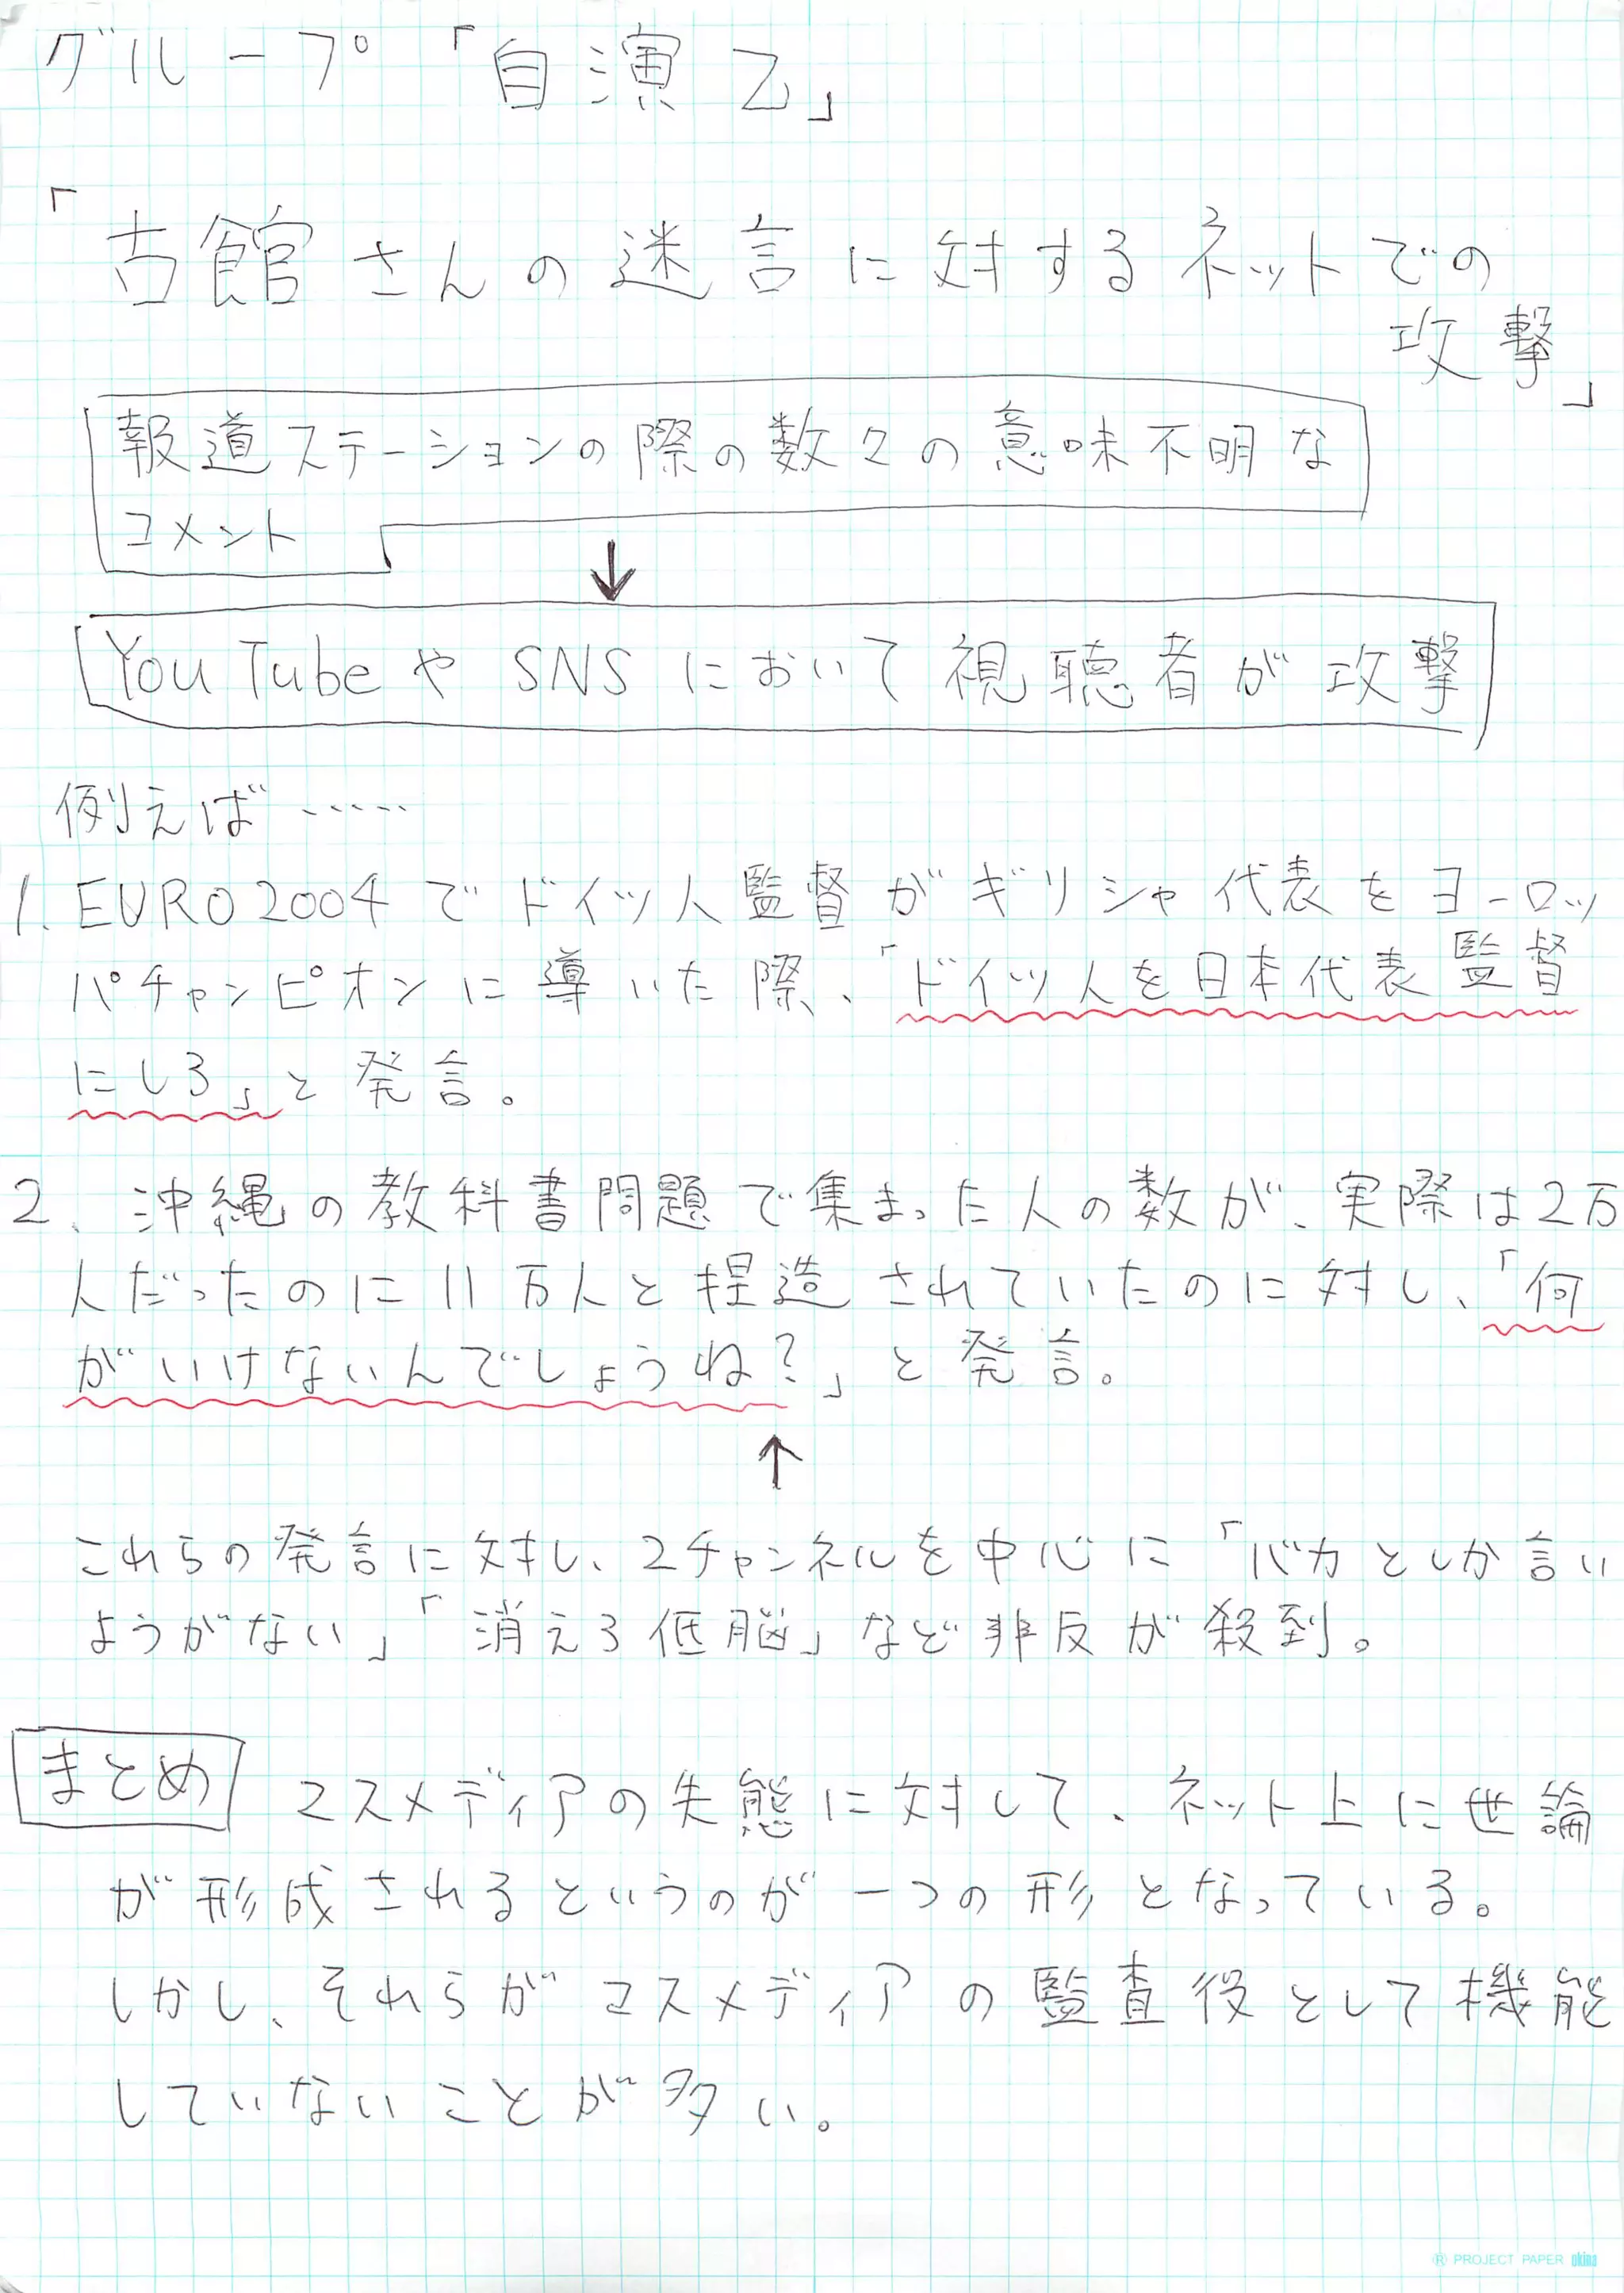 グループ「自演乙」
「古館さんの迷言に対するネットでの
攻撃」
報道ステーションの際の数々の意味不明な
コメント
↓
YouTubeや SNSにおいて視聴者が攻撃
例えば……
1. EURO2004でドイツ人監督がギリシャ代表をヨーロッ
パチャンピオンに導いた際、「ドイツ人を日本代表監督
にしろ」と発言。
2. 沖縄の教科書問題で集まった人の数が、実際は2万
人だったのに11万人と捏造されていたのに対し、「何
がいけないんでしょうね?」と発言。
↑
これらの発言に対し、2チャンネルを中心に「バカとしか言い
ようがない」「消えろ低脳」など非反が殺到。
まとめ マスメディアの失態に対して、ネット上に世論
が形成されるというのが一つの形となっている。
しかし、それらがマスメディアの監査役として機能
していないことが多い。
® PROJECT PAPER okina